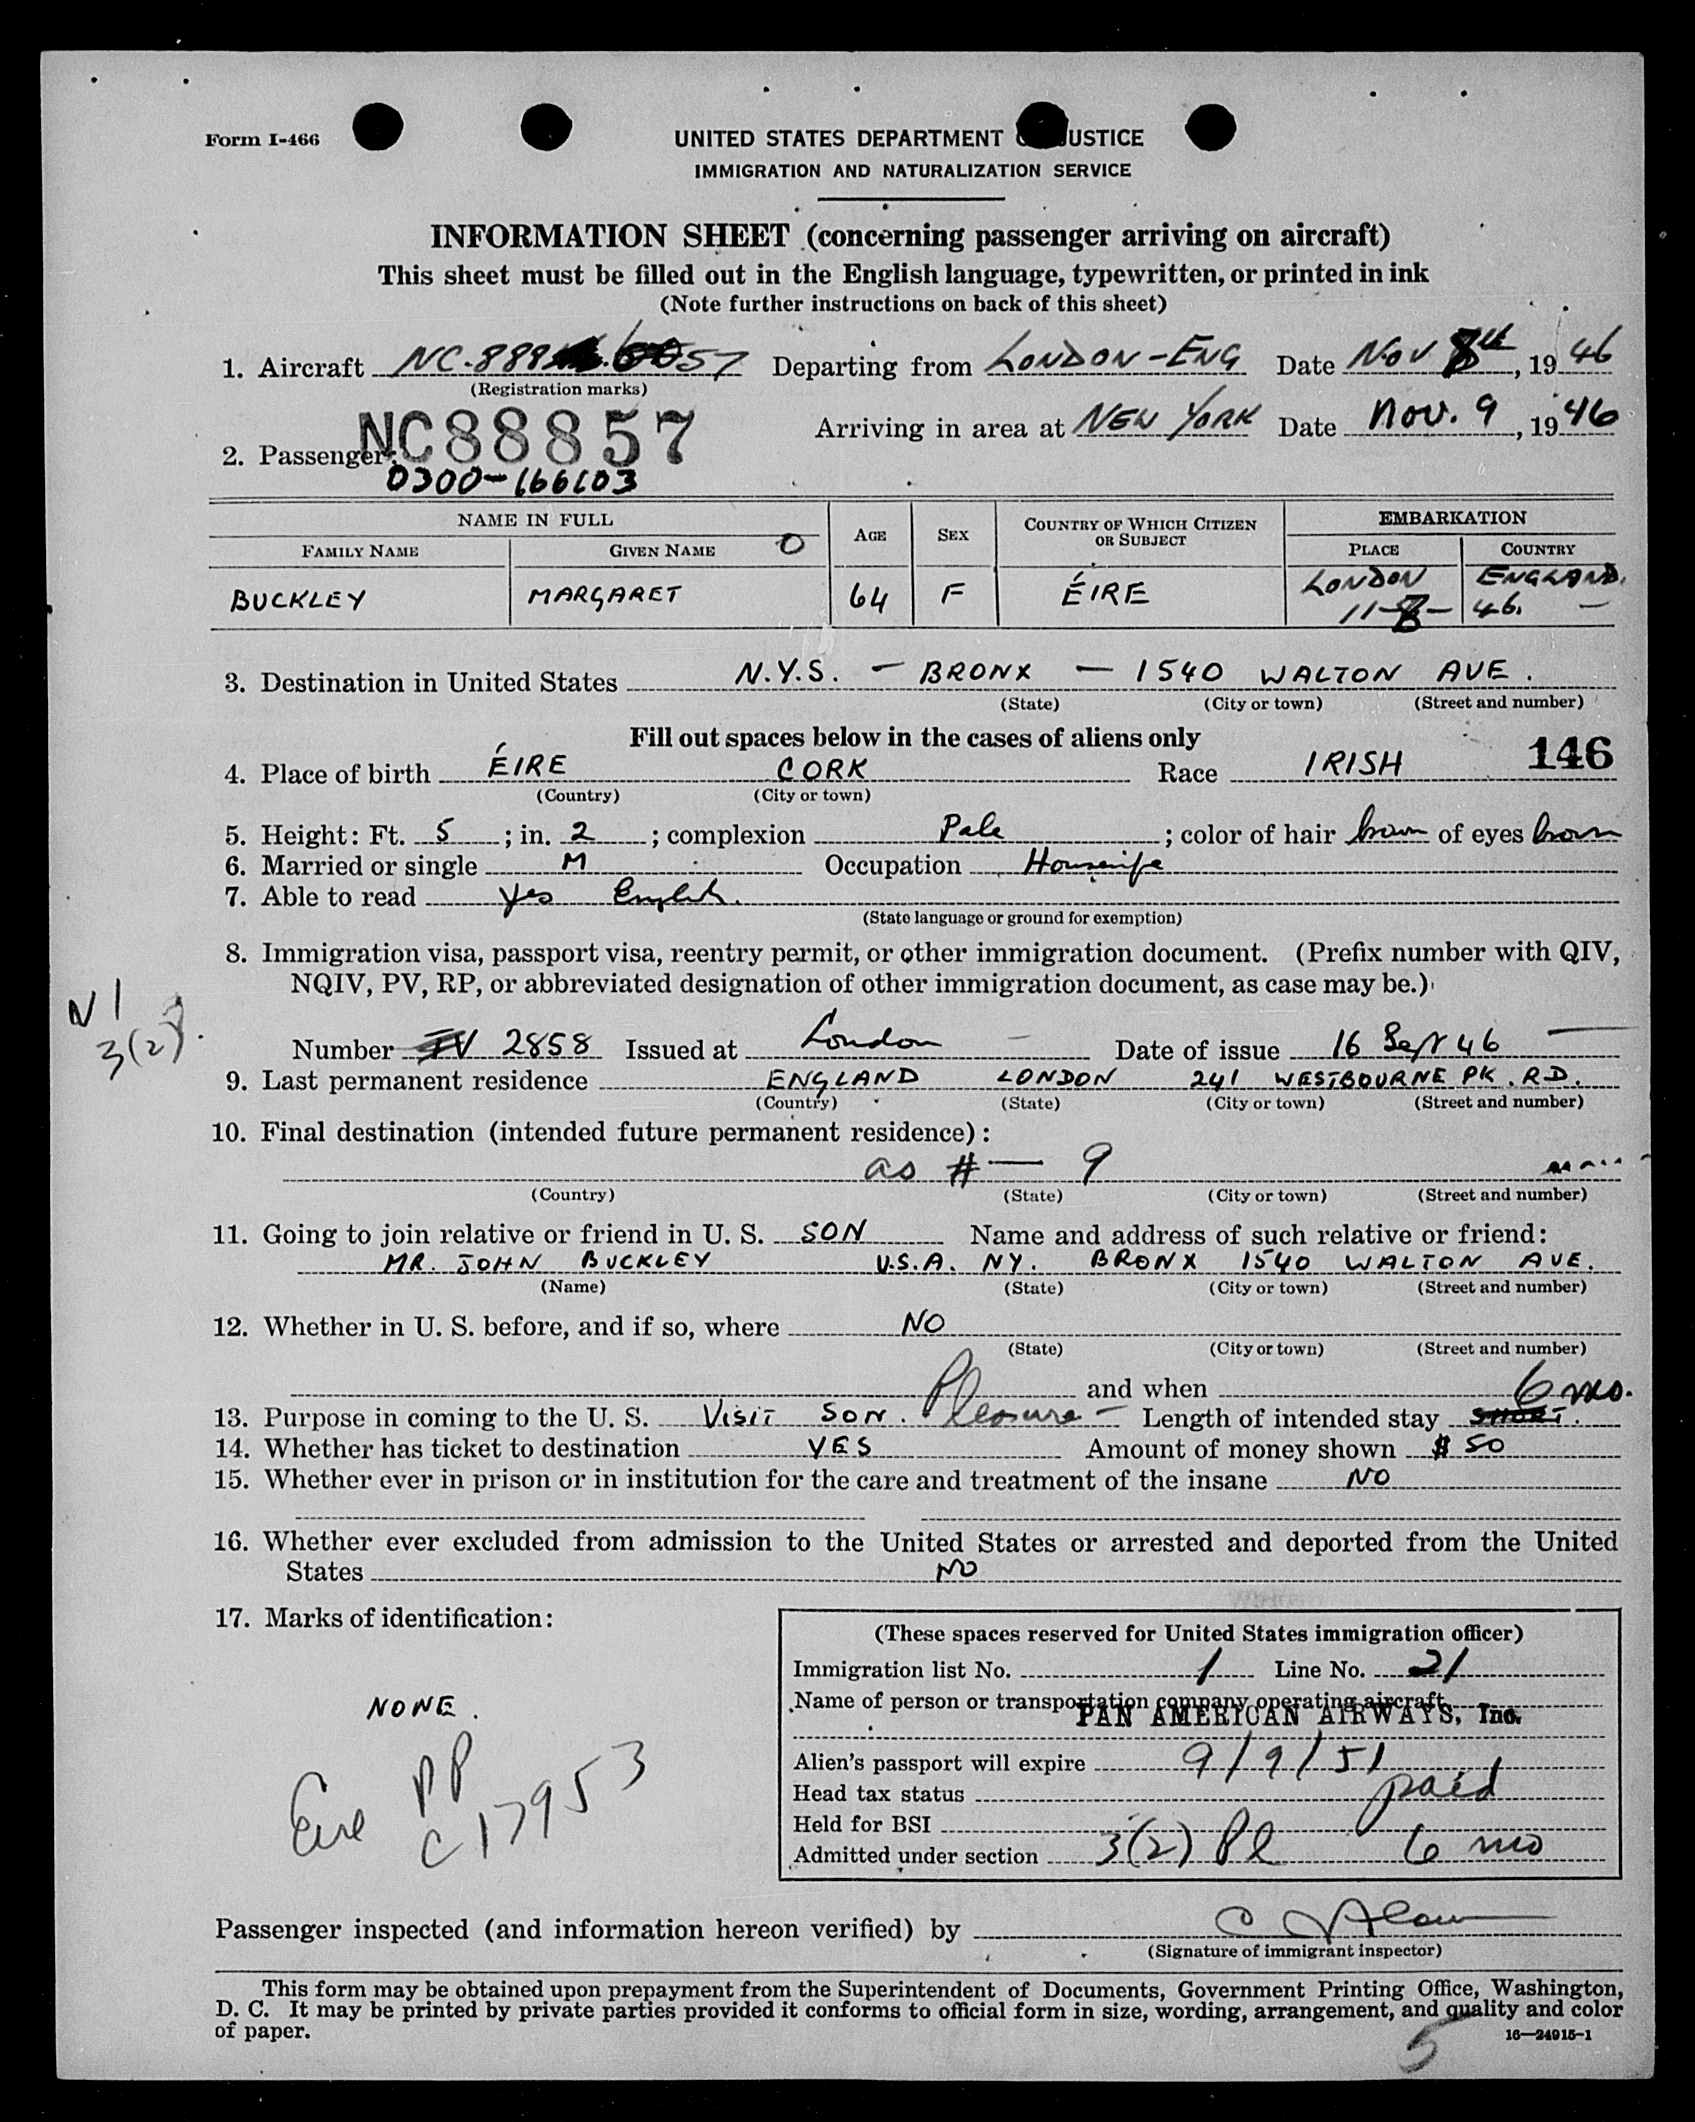 Form I-466
UNITED STATES DEPARTMENT USTICE
IMMIGRATION AND NATURALIZATION SERVICE
INFORMATION SHEET (concerning passenger arriving on aircraft)
This sheet must be filled out in the English language, typewritten, or printed in ink
(Note further instructions on back of this sheet)
1. Aircraft NC-888 57 Departing from LONDON-ENG Date NOV 8th, 1946
(Registration marks)
NC88857 Arriving in area at NEW YORK Date Nov. 9, 1946
2. Passenger:
0300-166103
NAME IN FULL AGE SEX COUNTRY OF WHICH CITIZEN OR SUBJECT EMBARKATION
FAMILY NAME GIVEN NAME O PLACE COUNTRY
BUCKLEY MARGARET 64 F ÉIRE LONDON ENGLAND.
11-8- 46. —
3. Destination in United States N.Y.S. — BRONX — 1540 WALTON AVE.
(State) (City or town) (Street and number)
Fill out spaces below in the cases of aliens only
146
4. Place of birth ÉIRE CORK Race IRISH
(Country) (City or town)
5. Height: Ft. 5; in. 2; complexion Pale; color of hair brown of eyes brown
6. Married or single M Occupation Housewife
7. Able to read Yes English.
(State language or ground for exemption)
8. Immigration visa, passport visa, reentry permit, or other immigration document. (Prefix number with QIV,
NQIV, PV, RP, or abbreviated designation of other immigration document, as case may be.)
N I
3(2).
Number IV 2858 Issued at London — Date of issue 16 Sept 46 —
9. Last permanent residence ENGLAND LONDON 241 WESTBOURNE PK. RD.
(Country) (State) (City or town) (Street and number)
10. Final destination (intended future permanent residence):
as # — 9
(Country) (State) (City or town) (Street and number)
11. Going to join relative or friend in U. S. SON Name and address of such relative or friend:
MR. JOHN BUCKLEY U.S.A. NY. BRONX 1540 WALTON AVE.
(Name) (State) (City or town) (Street and number)
12. Whether in U. S. before, and if so, where NO
(State) (City or town) (Street and number)
and when
13. Purpose in coming to the U. S. VISIT SON. Pleasure — Length of intended stay SHORT. 6 mo.
14. Whether has ticket to destination YES Amount of money shown $ 50
15. Whether ever in prison or in institution for the care and treatment of the insane NO
16. Whether ever excluded from admission to the United States or arrested and deported from the United
States NO
17. Marks of identification:
NONE.
Eire PP
C17953
(These spaces reserved for United States immigration officer)
Immigration list No. 1 Line No. 21
Name of person or transportation company operating aircraft
PAN AMERICAN AIRWAYS, Inc.
Alien's passport will expire 9/9/51
Head tax status paid
Held for BSI
Admitted under section 3(2) Pl 6 mo
Passenger inspected (and information hereon verified) by
(Signature of immigrant inspector)
This form may be obtained upon prepayment from the Superintendent of Documents, Government Printing Office, Washington,
D. C. It may be printed by private parties provided it conforms to official form in size, wording, arrangement, and quality and color
of paper.
16—24915-1
5